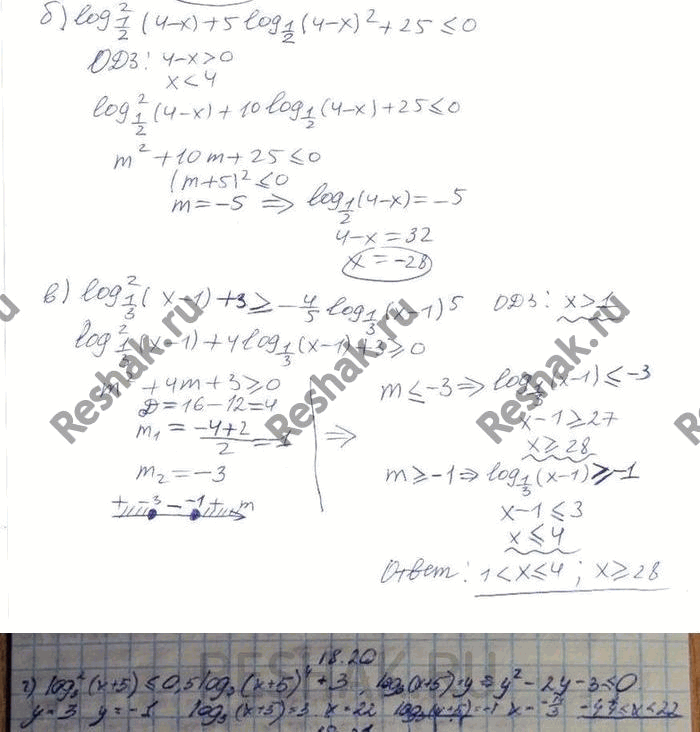 б) log²_{1/2} (4-x) + 5 log_{1/2} (4-x)² + 25 ≤ 0
ОДЗ: 4-x > 0
x < 4
log²_{1/2} (4-x) + 10 log_{1/2} (4-x) + 25 ≤ 0
m² + 10m + 25 ≤ 0
(m+5)² ≤ 0
m = -5 ⇒ log_{1/2} (4-x) = -5
4-x = 32
x = -28
в) log²_{1/3} (x-1) + 3 ≥ -4/5 log_{1/3} (x-1)⁵ ОДЗ: x > 1
log²_{1/3} (x-1) + 4 log_{1/3} (x-1) + 3 ≥ 0
m² + 4m + 3 ≥ 0
Д = 16-12 = 4
m₁ = (-4+2)/2 = -1
m₂ = -3
+ -3 - -1 + m
⇒
m ≤ -3 ⇒ log_{1/3} (x-1) ≤ -3
x-1 ≥ 27
x ≥ 28
m ≥ -1 ⇒ log_{1/3} (x-1) ≥ -1
x-1 ≤ 3
x ≤ 4
Ответ: 1 < x ≤ 4 ; x ≥ 28
Reshak.ru
Reshak.ru
Reshak.ru
RESHAK.RU
18.20
г) log₃² (x+5) ≤ 0,5 log₃ (x+5)⁴ + 3, log₃(x+5) = y ⇒ y² - 2y - 3 ≤ 0
y = 3 y = -1 log₃ (x+5) = 3 x = 22 log₃(x+5) = -1